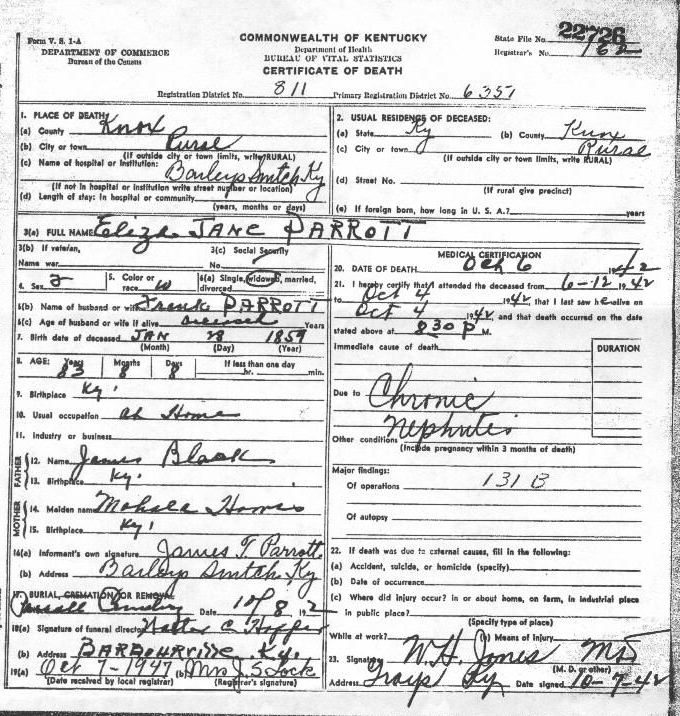 Form V. S. 1-A
DEPARTMENT OF COMMERCE
Bureau of the Census
COMMONWEALTH OF KENTUCKY
Department of Health
BUREAU OF VITAL STATISTICS
CERTIFICATE OF DEATH
State File No. 22726
Registrar's No. 162
Registration District No. 811 Primary Registration District No. 6351
1. PLACE OF DEATH:
(a) County Knox
(b) City or town Rural
(If outside city or town limits, write RURAL)
(c) Name of hospital or institution: Ky
(If not in hospital or institution write street number or location)
(d) Length of stay: In hospital or community
(years, months or days)
2. USUAL RESIDENCE OF DECEASED:
(a) State Ky (b) County Knox
(c) City or town Rural
(If outside city or town limits, write RURAL)
(d) Street No.
(If rural give precinct)
(e) If foreign born, how long in U. S. A.? years
3(a) FULL NAME Eliza JANE PARROTT
3(b) If veteran, 3(c) Social Security
Name war No.
4. Sex 2 5. Color or race W 6(a) Single, widowed, married, divorced
6(b) Name of husband or wife Frank PARROTT
6(c) Age of husband or wife if alive deceased Years
7. Birth date of deceased JAN 28 1859
(Month) (Day) (Year)
8. AGE: Years Months Days If less than one day
83 8 8 hr. min.
9. Birthplace Ky.
10. Usual occupation at Home
11. Industry or business
FATHER
12. Name James Black
13. Birthplace Ky.
MOTHER
14. Maiden name Mahala
15. Birthplace Ky.
16(a) Informant's own signature James T. Parrott
(b) Address Ky
17. BURIAL, CREMATION OR REMOVAL
Cemetery Date 10/8 1942
18(a) Signature of funeral director Walter C
(b) Address BARBOURVILLE Ky.
19(a) Oct 7-1947 (b) Mrs J. S. Lock
(Date received by local registrar) (Registrar's signature)
MEDICAL CERTIFICATION
20. DATE OF DEATH Oct 6 1942
21. I hereby certify that I attended the deceased from 6-12 1942
to Oct 4 1942, that I last saw he alive on
Oct 4 1942, and that death occurred on the date
stated above at 8 30 P M.
Immediate cause of death DURATION
Due to Chronic
Nephritis
Other conditions
(Include pregnancy within 3 months of death)
Major findings:
Of operations 131 B
Of autopsy
22. If death was due to external causes, fill in the following:
(a) Accident, suicide, or homicide (specify)
(b) Date of occurrence
(c) Where did injury occur? in or about home, on farm, in industrial place
in public place?
(Specify type of place)
While at work? (e) Means of injury
23. Signature W. H. Jones MD
(M. D. or other)
Address Grays Ky Date signed 10-7-42